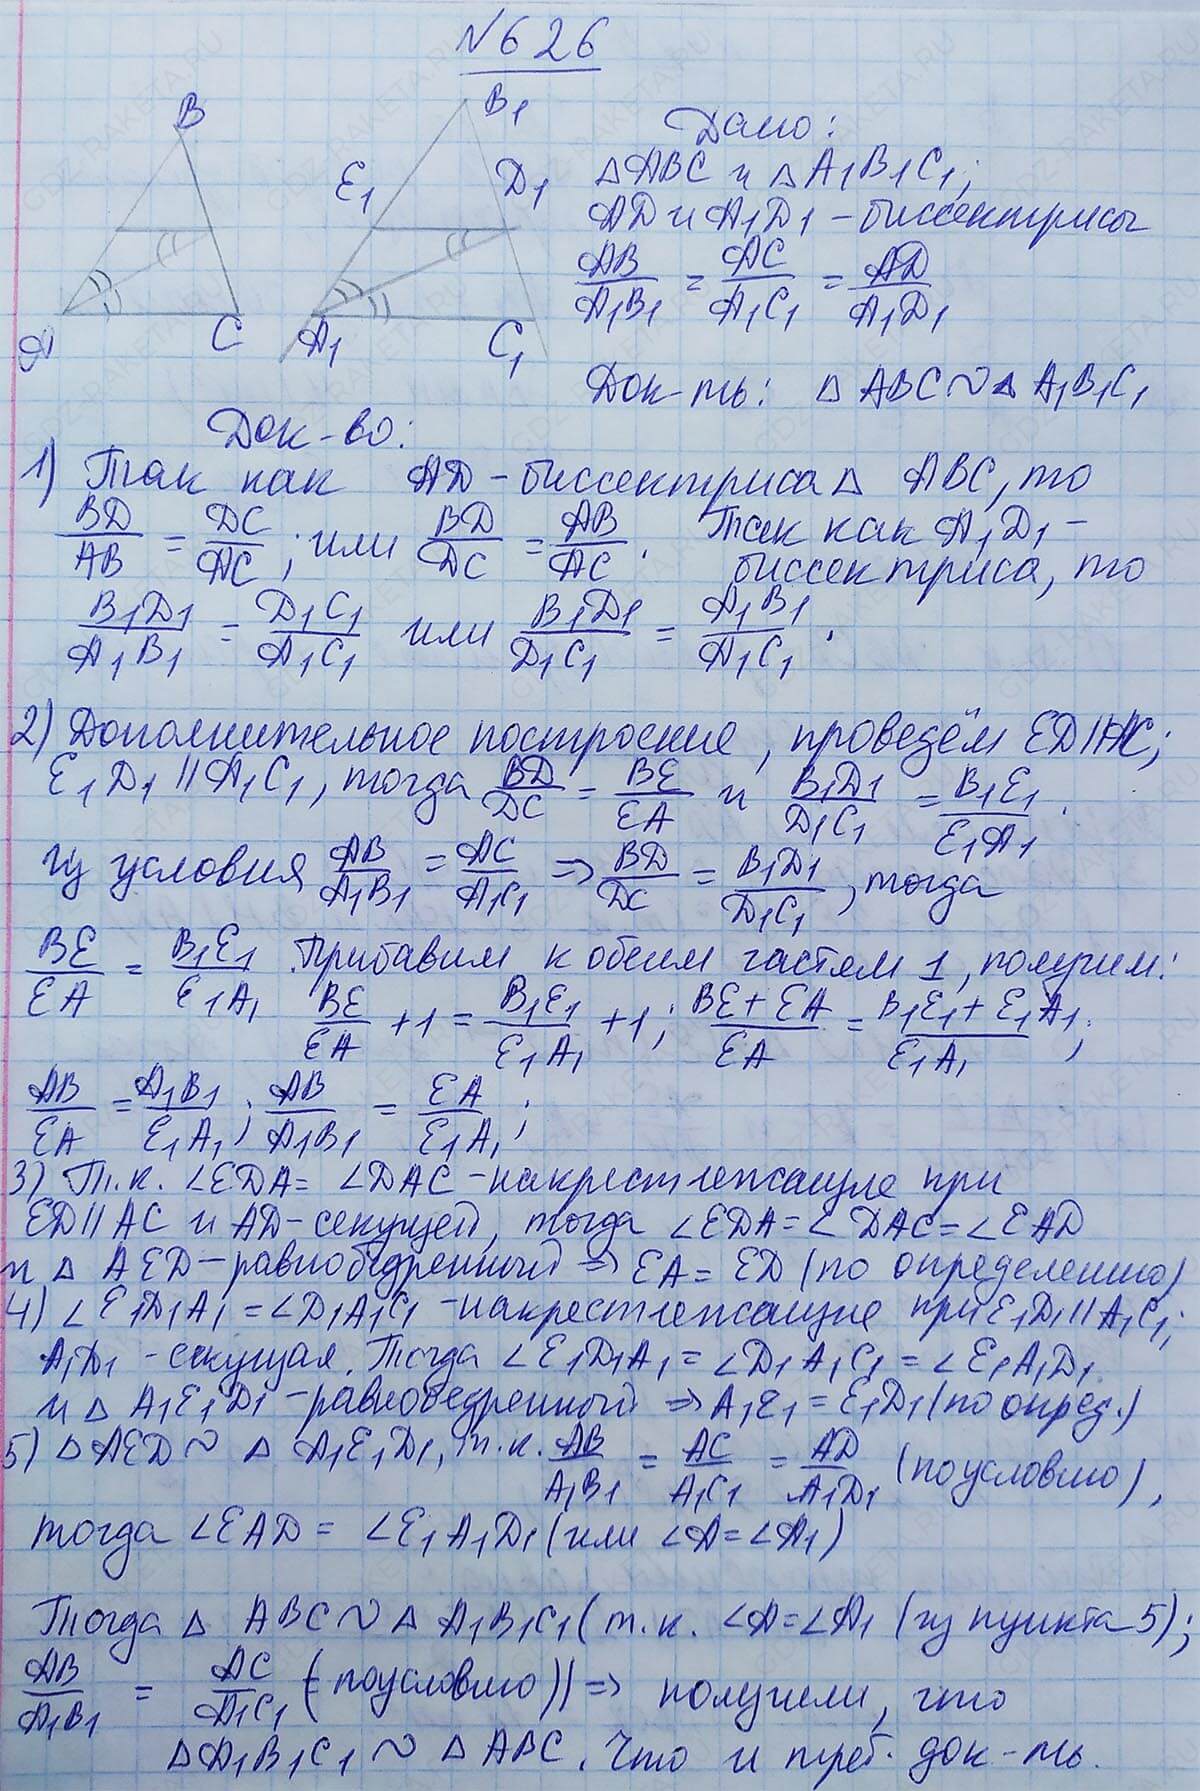 №626
B B1
E1 D1
A C A1 C1
Дано:
△ABC и △A1B1C1;
AD и A1D1 – биссектрисы
AB/A1B1 = AC/A1C1 = AD/A1D1
Док-ть: △ABC ~ △A1B1C1
Док-во:
1) Так как AD – биссектриса △ ABC, то
BD/AB = DC/AC; или BD/DC = AB/AC. Так как A1D1 –
биссектриса, то
B1D1/A1B1 = D1C1/A1C1 или B1D1/D1C1 = A1B1/A1C1.
2) Дополнительное построение, проведём ED||AC;
E1D1||A1C1, тогда BD/DC = BE/EA и B1D1/D1C1 = B1E1/E1A1.
Из условия AB/A1B1 = AC/A1C1 => BD/DC = B1D1/D1C1, тогда
BE/EA = B1E1/E1A1. Прибавим к обеим частям 1, получим:
BE/EA + 1 = B1E1/E1A1 + 1; BE + EA/EA = B1E1 + E1A1/E1A1;
AB/EA = A1B1/E1A1; AB/A1B1 = EA/E1A1;
3) Т.к. ∠EDA = ∠DAC – накрестлежащие при
ED||AC и AD – секущей, тогда ∠EDA = ∠DAC = ∠EAD
и △ AED – равнобедренный => EA = ED (по определению)
4) ∠E1D1A1 = ∠D1A1C1 – накрестлежащие при E1D1||A1C1;
A1D1 – секущая. Тогда ∠E1D1A1 = ∠D1A1C1 = ∠E1A1D1
и △ A1E1D1 – равнобедренный => A1E1 = E1D1 (по опред.)
5) △AED ~ △ A1E1D1, т.к. AB/A1B1 = AC/A1C1 = AD/A1D1 (по условию),
тогда ∠EAD = ∠E1A1D1 (или ∠A = ∠A1)
Тогда △ ABC ~ △ A1B1C1 (т.к. ∠A = ∠A1 (из пункта 5);
AB/A1B1 = AC/A1C1 (по условию)) => получили, что
△A1B1C1 ~ △ABC. Что и треб. док-ть.